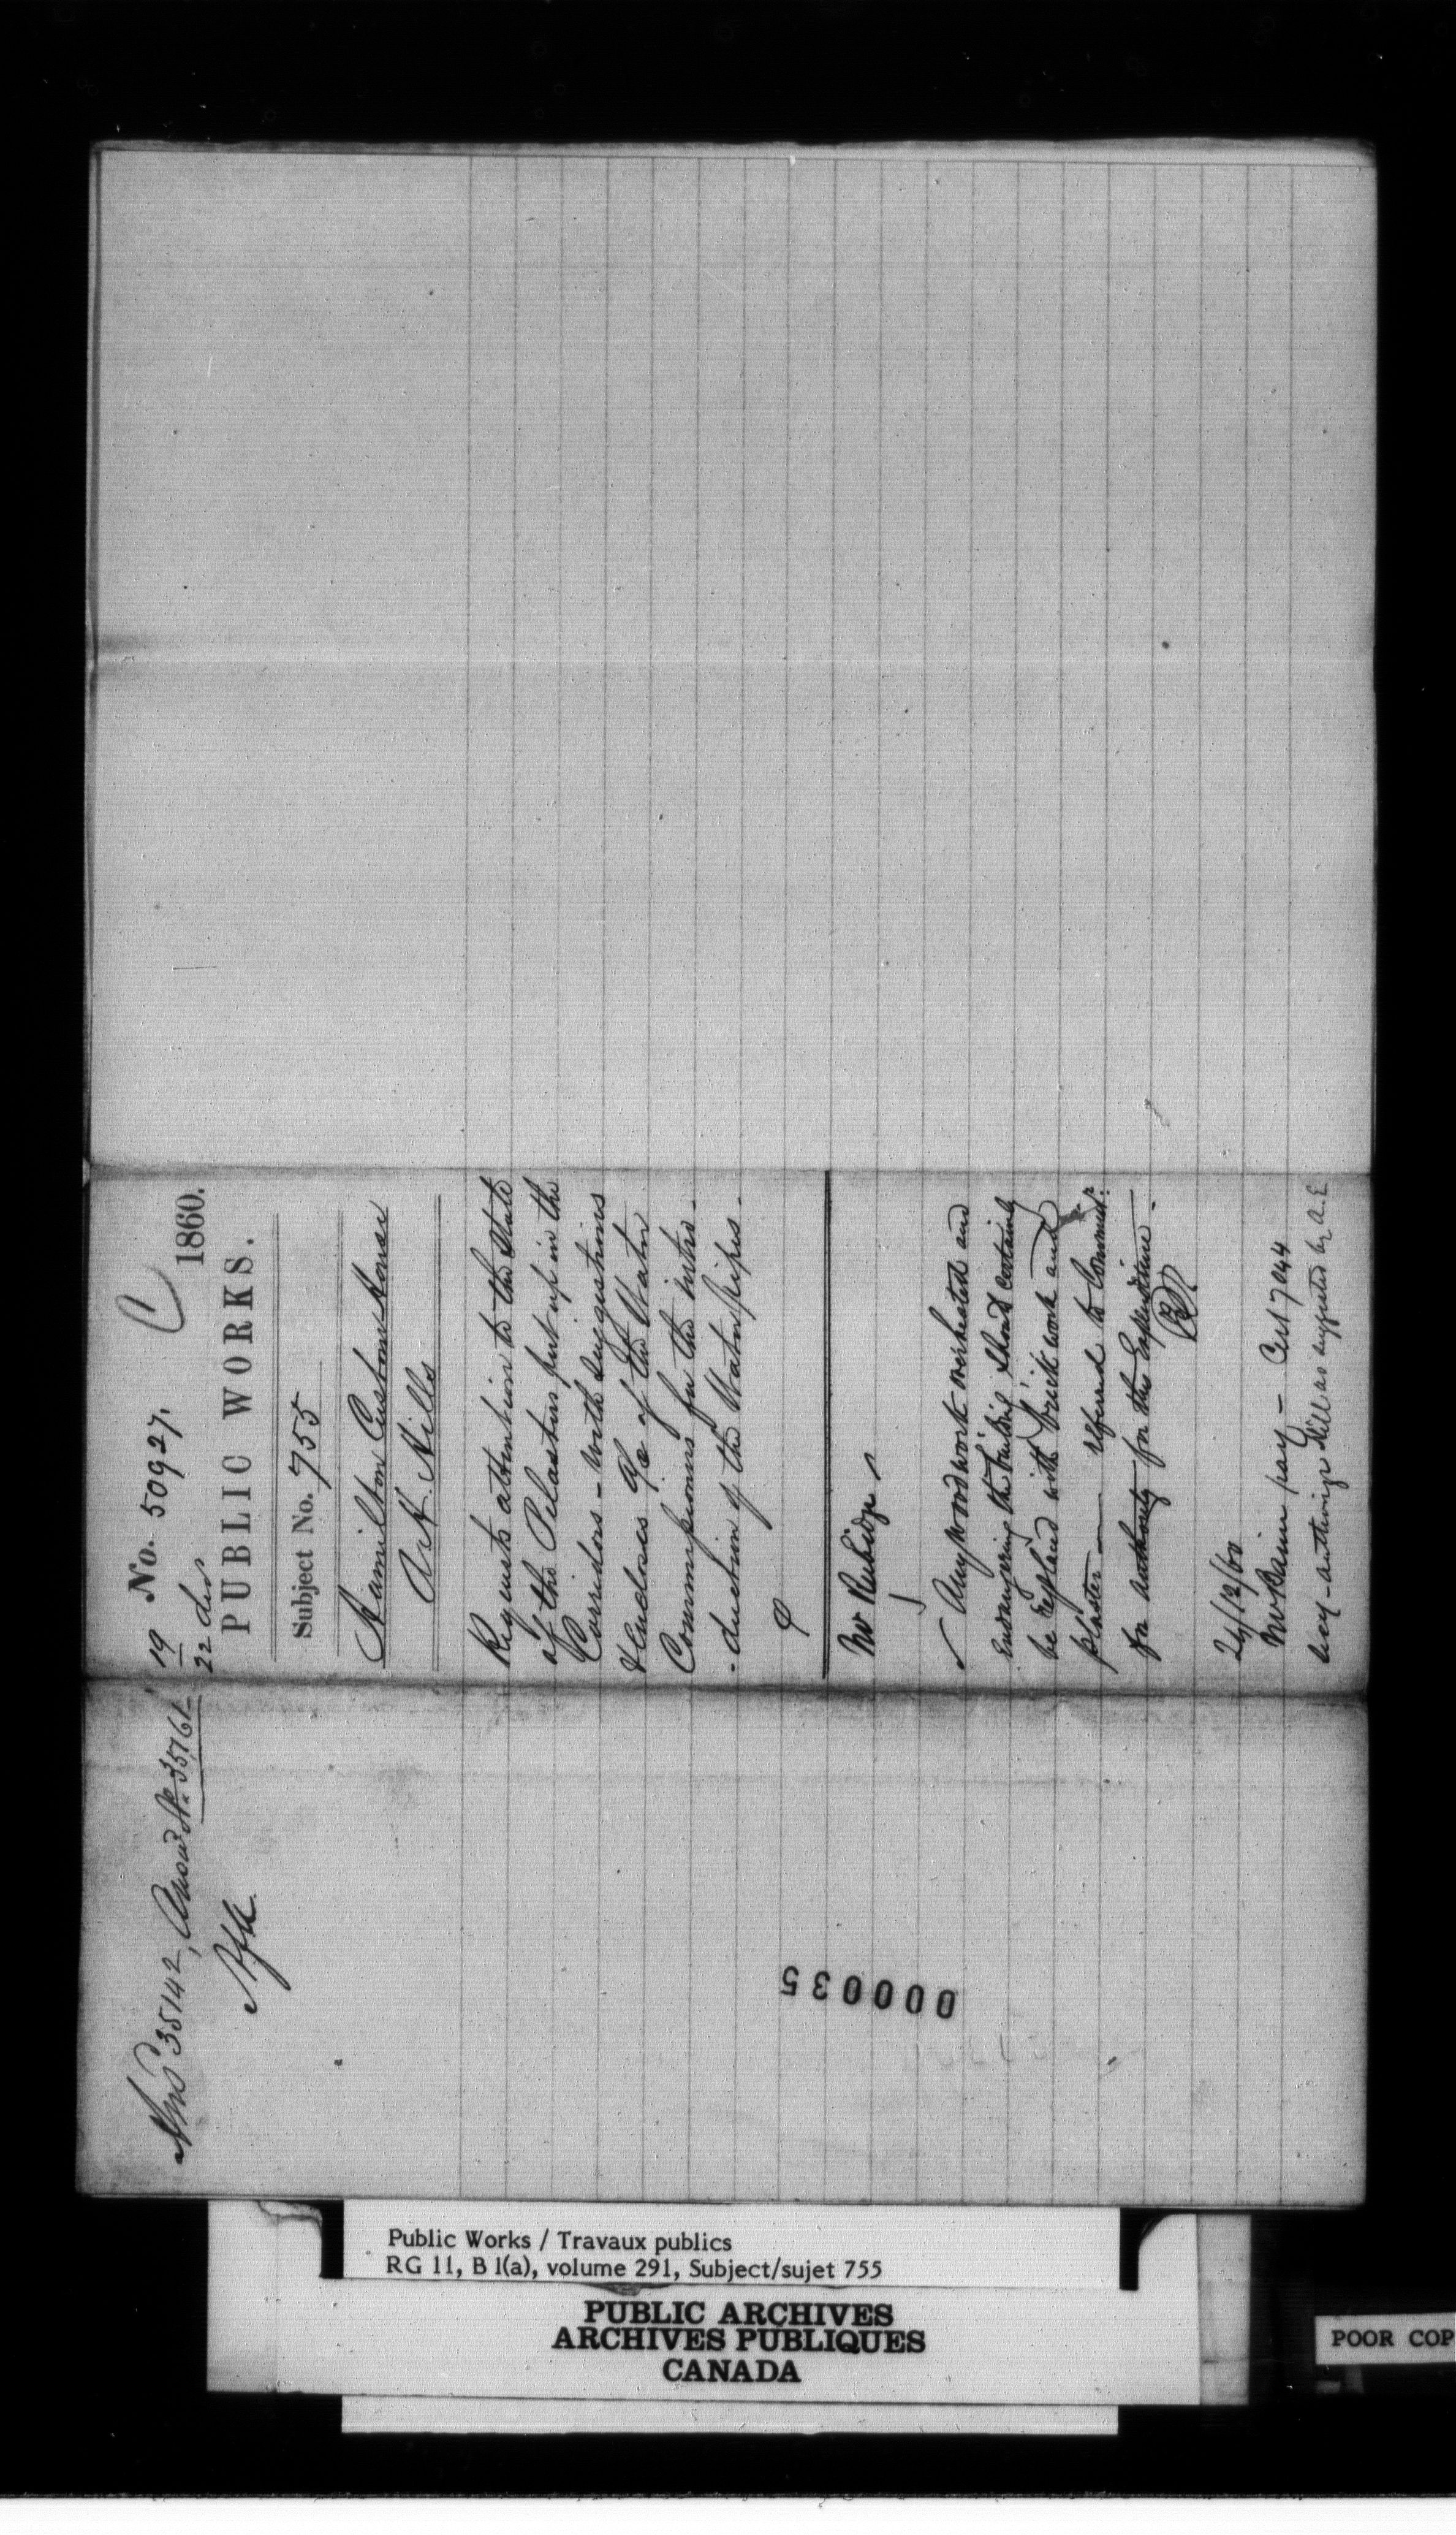 No. 50927.
C
19
22 dec
1860.
PUBLIC WORKS.
Subject No. 755
Hamilton Custom House
A. H. Hills
Requests attention to the state
of the Pilasters put up in the
Corridors - with suggestions
& Encloses a/c of the Water
Commissioners for the intro-
-duction of the Water pipes.
Mr Rubidge
Any woodwork overheated and
endangering the building should certainly
be replaced with brick work and
plaster — referred to Commissr.
for authority for the Expenditure.
26/12/60
pay - Cert 7044
authorize Hill as suggested by A.E
35142, Answd No. 35761
000035
Public Works / Travaux publics
RG 11, B 1(a), volume 291, Subject/sujet 755
PUBLIC ARCHIVES
ARCHIVES PUBLIQUES
CANADA
POOR COP